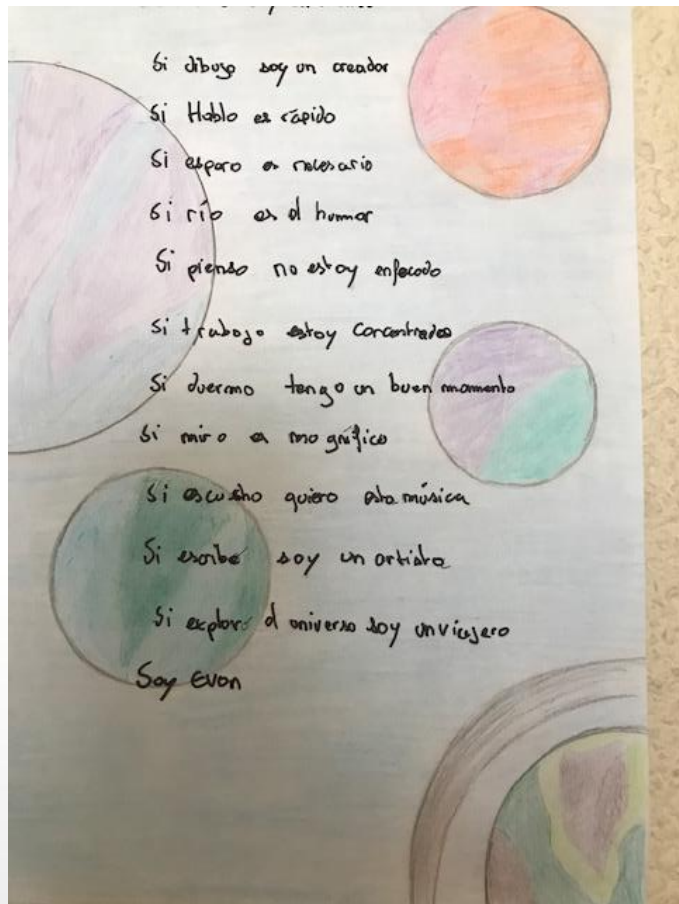 Si dibujo soy un creador
Si Hablo es rápido
Si espero es necesario
Si río es el humor
Si pienso no estoy enfocado
Si trabajo estoy concentrado
Si duermo tengo un buen momento
Si miro es magnífico
Si escucho quiero esta música
Si escribo soy un artista
Si exploro el universo soy un viajero
Soy Evan